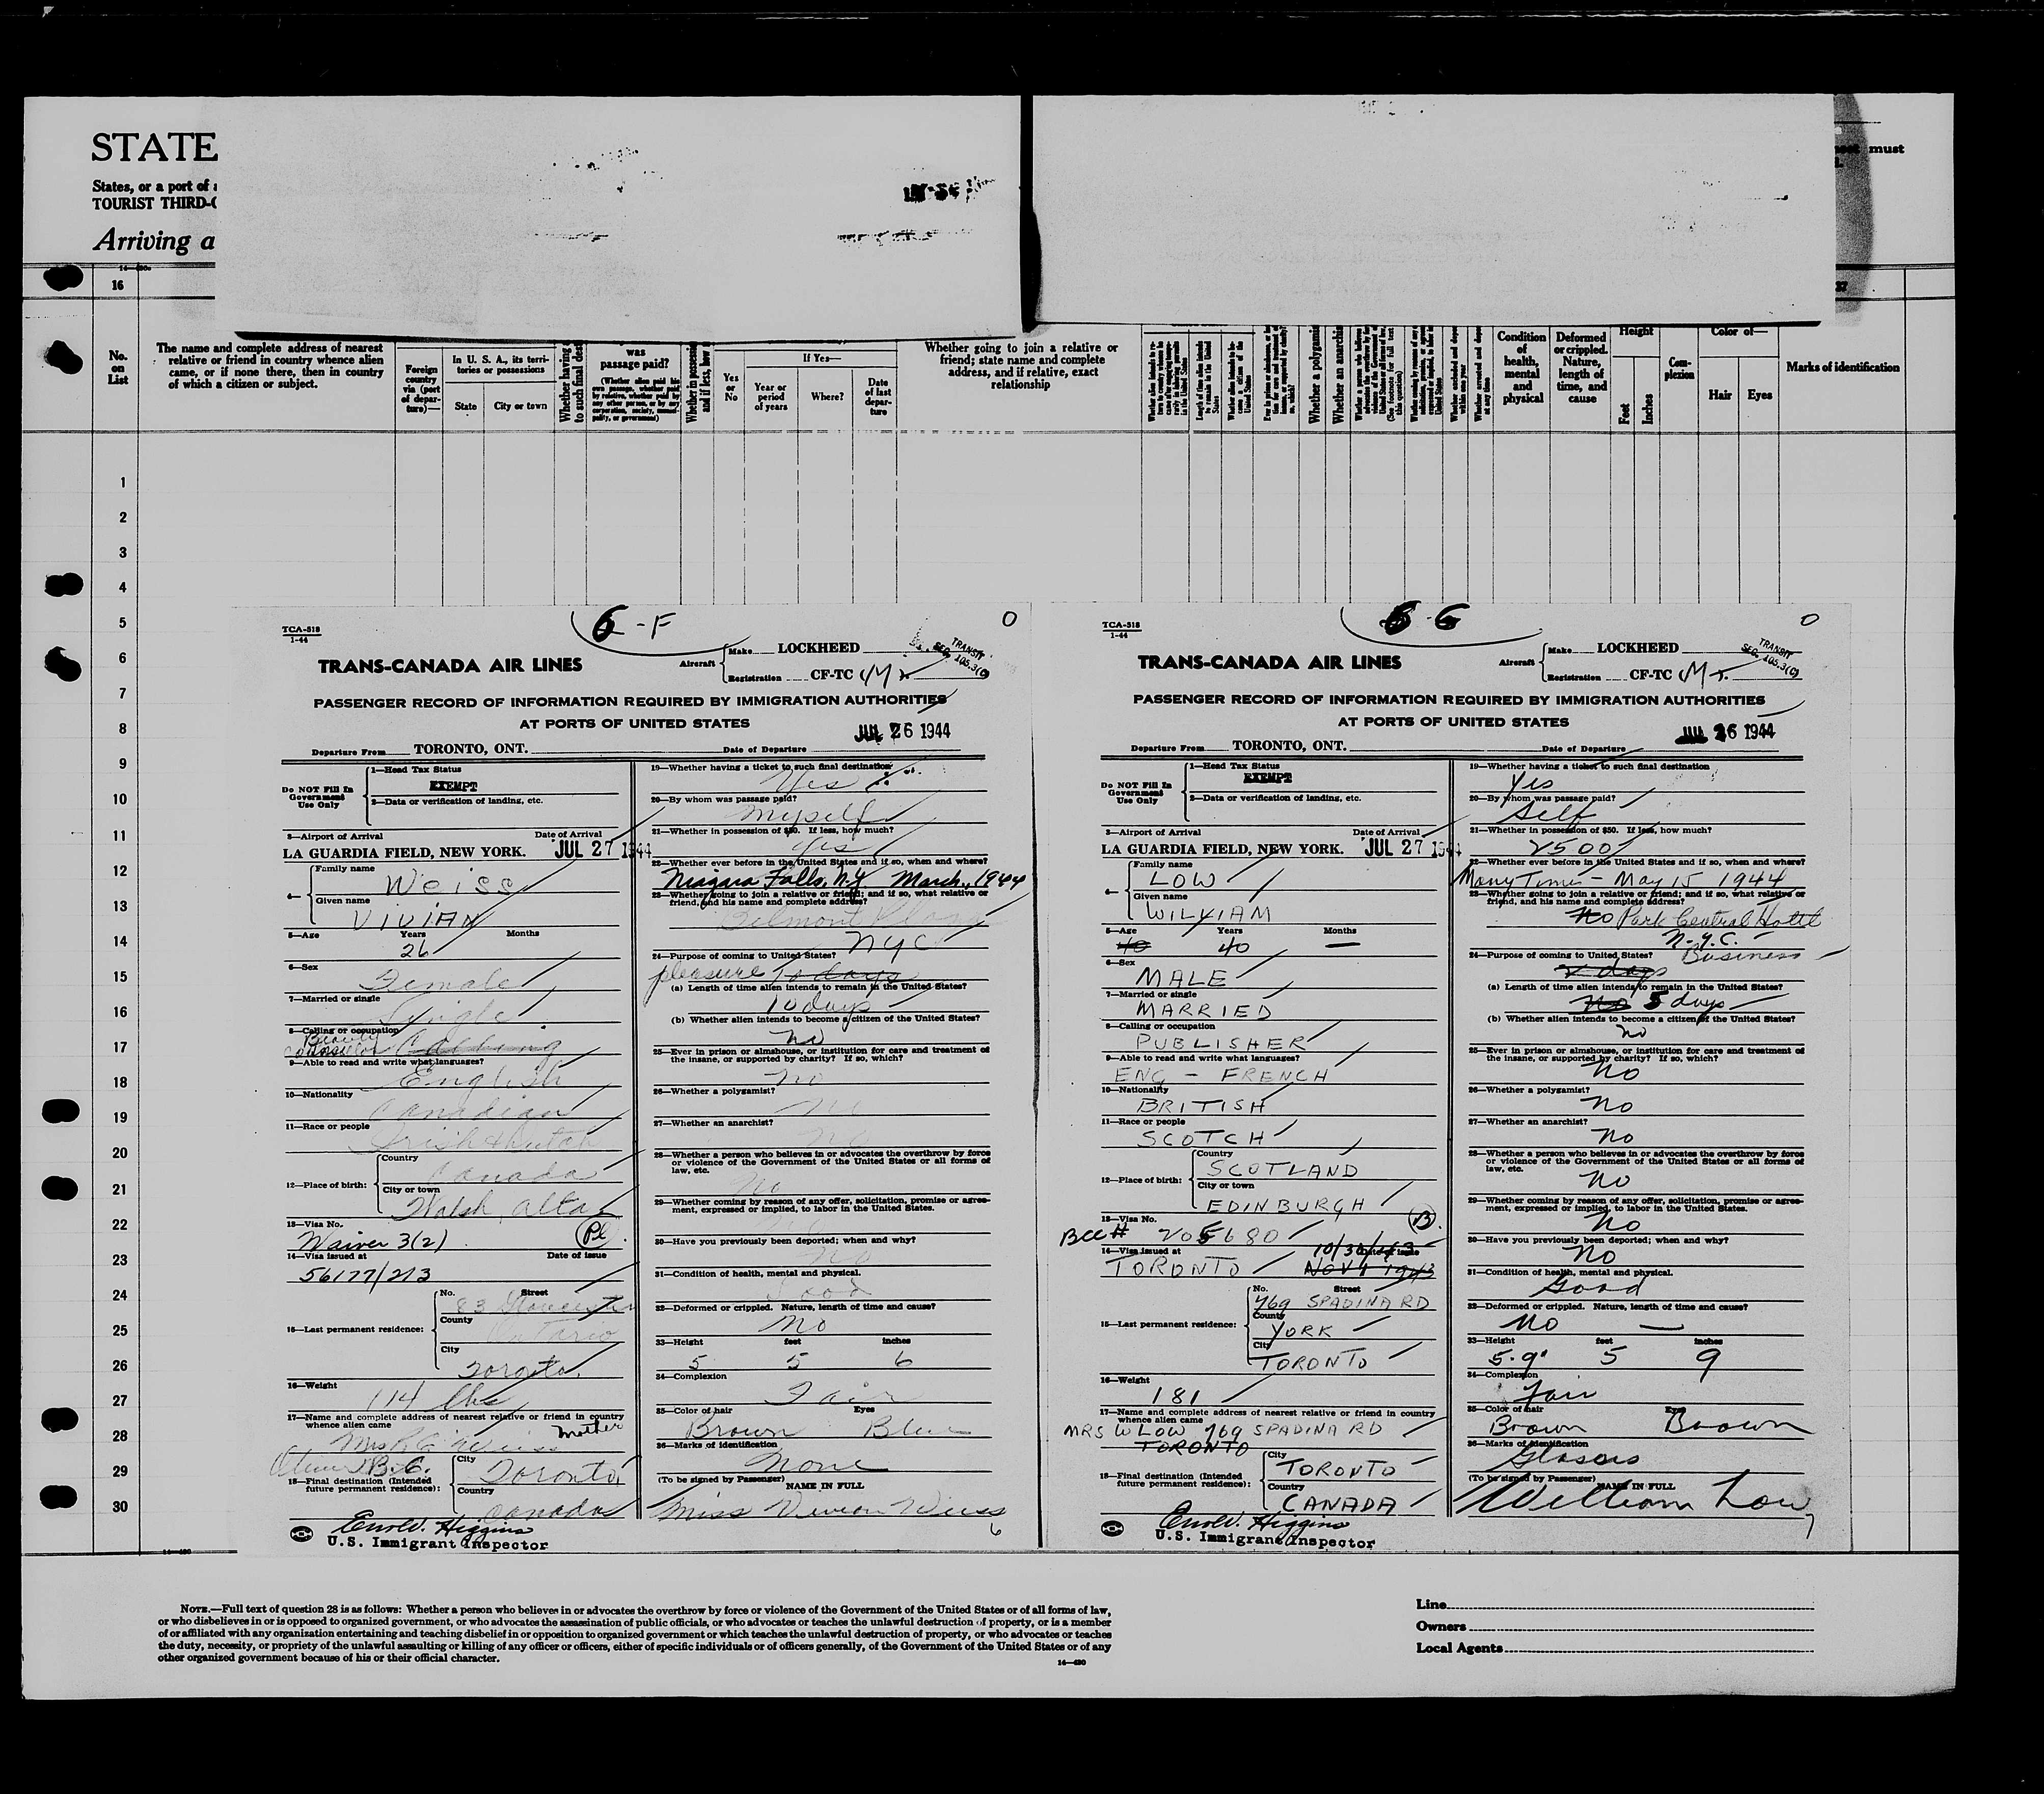 STATE
States, or a port of
TOURIST THIRD-C
Arriving a
must
16
37
No. on List
The name and complete address of nearest
relative or friend in country whence alien
came, or if none there, then in country
of which a citizen or subject.
Foreign country via (port of departure)—
In U. S. A., its territories or possessions
State
City or town
Whether having a
to such final dest
was passage paid?
(Whether alien paid his own passage, whether paid by relative, whether paid by any other person, or by any corporation, society, municipality, or government)
Whether in possession
and if less, how
Yes or No
If Yes—
Year or period of years
Where?
Date of last departure
Whether going to join a relative or
friend; state name and complete
address, and if relative, exact
relationship
Length of time alien intends to remain in the United States
Whether alien intends to become a citizen of the United States
Whether a polygamis
Whether an anarchis
Condition of health, mental and physical
Deformed or crippled. Nature, length of time, and cause
Height
Feet
Inches
Complexion
Color of—
Hair
Eyes
Marks of identification
1
2
3
4
5
6
7
8
9
10
11
12
13
14
15
16
17
18
19
20
21
22
23
24
25
26
27
28
29
30
6-F
0
TCA-518
1-44
TRANS-CANADA AIR LINES
Aircraft
Make LOCKHEED
Registration CF-TC M
TRANSIT
SEC. 105.3(C)
PASSENGER RECORD OF INFORMATION REQUIRED BY IMMIGRATION AUTHORITIES
AT PORTS OF UNITED STATES
JUL 26 1944
Departure From TORONTO, ONT. Date of Departure
Do NOT Fill In Government Use Only
1—Head Tax Status
EXEMPT
2—Data or verification of landing, etc.
3—Airport of Arrival Date of Arrival
LA GUARDIA FIELD, NEW YORK. JUL 27 1944
4—
Family name
Weiss
Given name
VIVIAN
5—Age Years Months
26
6—Sex
Female
7—Married or single
Single
8—Calling or occupation
Beauty
9—Able to read and write what languages?
English
10—Nationality
Canadian
11—Race or people
Irish & Dutch
12—Place of birth:
Country
Canada
City or town
Walsh, Alta
13—Visa No.
Waiver 3(2) Pl
14—Visa issued at Date of issue
56177/213
15—Last permanent residence:
No. Street
83 Gloucester
County
Ontario
City
Toronto
16—Weight
114 lbs
17—Name and complete address of nearest relative or friend in country
whence alien came
mother
Mrs R. G. Weiss
B.C.
18—Final destination (Intended
future permanent residence):
City
Toronto
Country
Canada
U.S. Immigrant Inspector
19—Whether having a ticket to such final destination
Yes
20—By whom was passage paid?
Myself
21—Whether in possession of $50. If less, how much?
Yes
22—Whether ever before in the United States and if so, when and where?
Niagara Falls, N.Y. March, 1944
23—Whether going to join a relative or friend; and if so, what relative or
friend, and his name and complete address?
Belmont Plaza
NYC
24—Purpose of coming to United States?
pleasure 10 days
(a) Length of time alien intends to remain in the United States?
10 days
(b) Whether alien intends to become a citizen of the United States?
no
25—Ever in prison or almshouse, or institution for care and treatment of
the insane, or supported by charity? If so, which?
no
26—Whether a polygamist?
no
27—Whether an anarchist?
no
28—Whether a person who believes in or advocates the overthrow by force
or violence of the Government of the United States or all forms of
law, etc.
No
29—Whether coming by reason of any offer, solicitation, promise or agreement, expressed or implied, to labor in the United States.
no
30—Have you previously been deported; when and why?
no
31—Condition of health, mental and physical.
Good
32—Deformed or crippled. Nature, length of time and cause?
No
33—Height feet inches
5 5 6
34—Complexion
Fair
35—Color of hair Eyes
Brown Blue
36—Marks of identification
None
(To be signed by Passenger)
NAME IN FULL
Miss Vivian Weiss
6
6 G
0
TCA-518
1-44
TRANS-CANADA AIR LINES
Aircraft
Make LOCKHEED
Registration CF-TC M
TRANSIT
SEC. 105.3(C)
PASSENGER RECORD OF INFORMATION REQUIRED BY IMMIGRATION AUTHORITIES
AT PORTS OF UNITED STATES
JUL 26 1944
Departure From TORONTO, ONT. Date of Departure
Do NOT Fill In Government Use Only
1—Head Tax Status
EXEMPT
2—Data or verification of landing, etc.
3—Airport of Arrival Date of Arrival
LA GUARDIA FIELD, NEW YORK. JUL 27 1944
4—
Family name
LOW
Given name
WILLIAM
5—Age Years Months
40 40 —
6—Sex
MALE
7—Married or single
MARRIED
8—Calling or occupation
PUBLISHER
9—Able to read and write what languages?
ENG - FRENCH
10—Nationality
BRITISH
11—Race or people
SCOTCH
12—Place of birth:
Country
SCOTLAND
City or town
EDINBURGH
13—Visa No. B
BCC# 205680
14—Visa issued at 10/30/43
TORONTO NOV 4 1943
15—Last permanent residence:
No. Street
769 SPADINA RD
County
YORK
City
TORONTO
16—Weight
181
17—Name and complete address of nearest relative or friend in country
whence alien came
MRS W LOW 769 SPADINA RD
TORONTO
18—Final destination (Intended
future permanent residence):
City
TORONTO
Country
CANADA
U.S. Immigrant Inspector
19—Whether having a ticket to such final destination
Yes
20—By whom was passage paid?
Self
21—Whether in possession of $50. If less, how much?
2500
22—Whether ever before in the United States and if so, when and where?
Many Times - May 15 1944
23—Whether going to join a relative or friend; and if so, what relative or
friend, and his name and complete address?
No Park Central Hotel
N.Y.C.
24—Purpose of coming to United States? Business
2 days
(a) Length of time alien intends to remain in the United States?
No 5 days
(b) Whether alien intends to become a citizen of the United States?
no
25—Ever in prison or almshouse, or institution for care and treatment of
the insane, or supported by charity? If so, which?
No
26—Whether a polygamist?
no
27—Whether an anarchist?
no
28—Whether a person who believes in or advocates the overthrow by force
or violence of the Government of the United States or all forms of
law, etc.
No
29—Whether coming by reason of any offer, solicitation, promise or agreement, expressed or implied, to labor in the United States.
No
30—Have you previously been deported; when and why?
No
31—Condition of health, mental and physical.
Good
32—Deformed or crippled. Nature, length of time and cause?
No —
33—Height feet inches
5.9" 5 9
34—Complexion
Fair
35—Color of hair Eyes
Brown Brown
36—Marks of identification
Glasses
(To be signed by Passenger)
NAME IN FULL
William Low
7
NOTE.—Full text of question 28 is as follows: Whether a person who believes in or advocates the overthrow by force or violence of the Government of the United States or of all forms of law,
or who disbelieves in or is opposed to organized government, or who advocates the assassination of public officials, or who advocates or teaches the unlawful destruction of property, or is a member
of or affiliated with any organization entertaining and teaching disbelief in or opposition to organized government or which teaches the unlawful destruction of property, or who advocates or teaches
the duty, necessity, or propriety of the unlawful assaulting or killing of any officer or officers, either of specific individuals or of officers generally, of the Government of the United States or of any
other organized government because of his or their official character.
14—480
Line
Owners
Local Agents